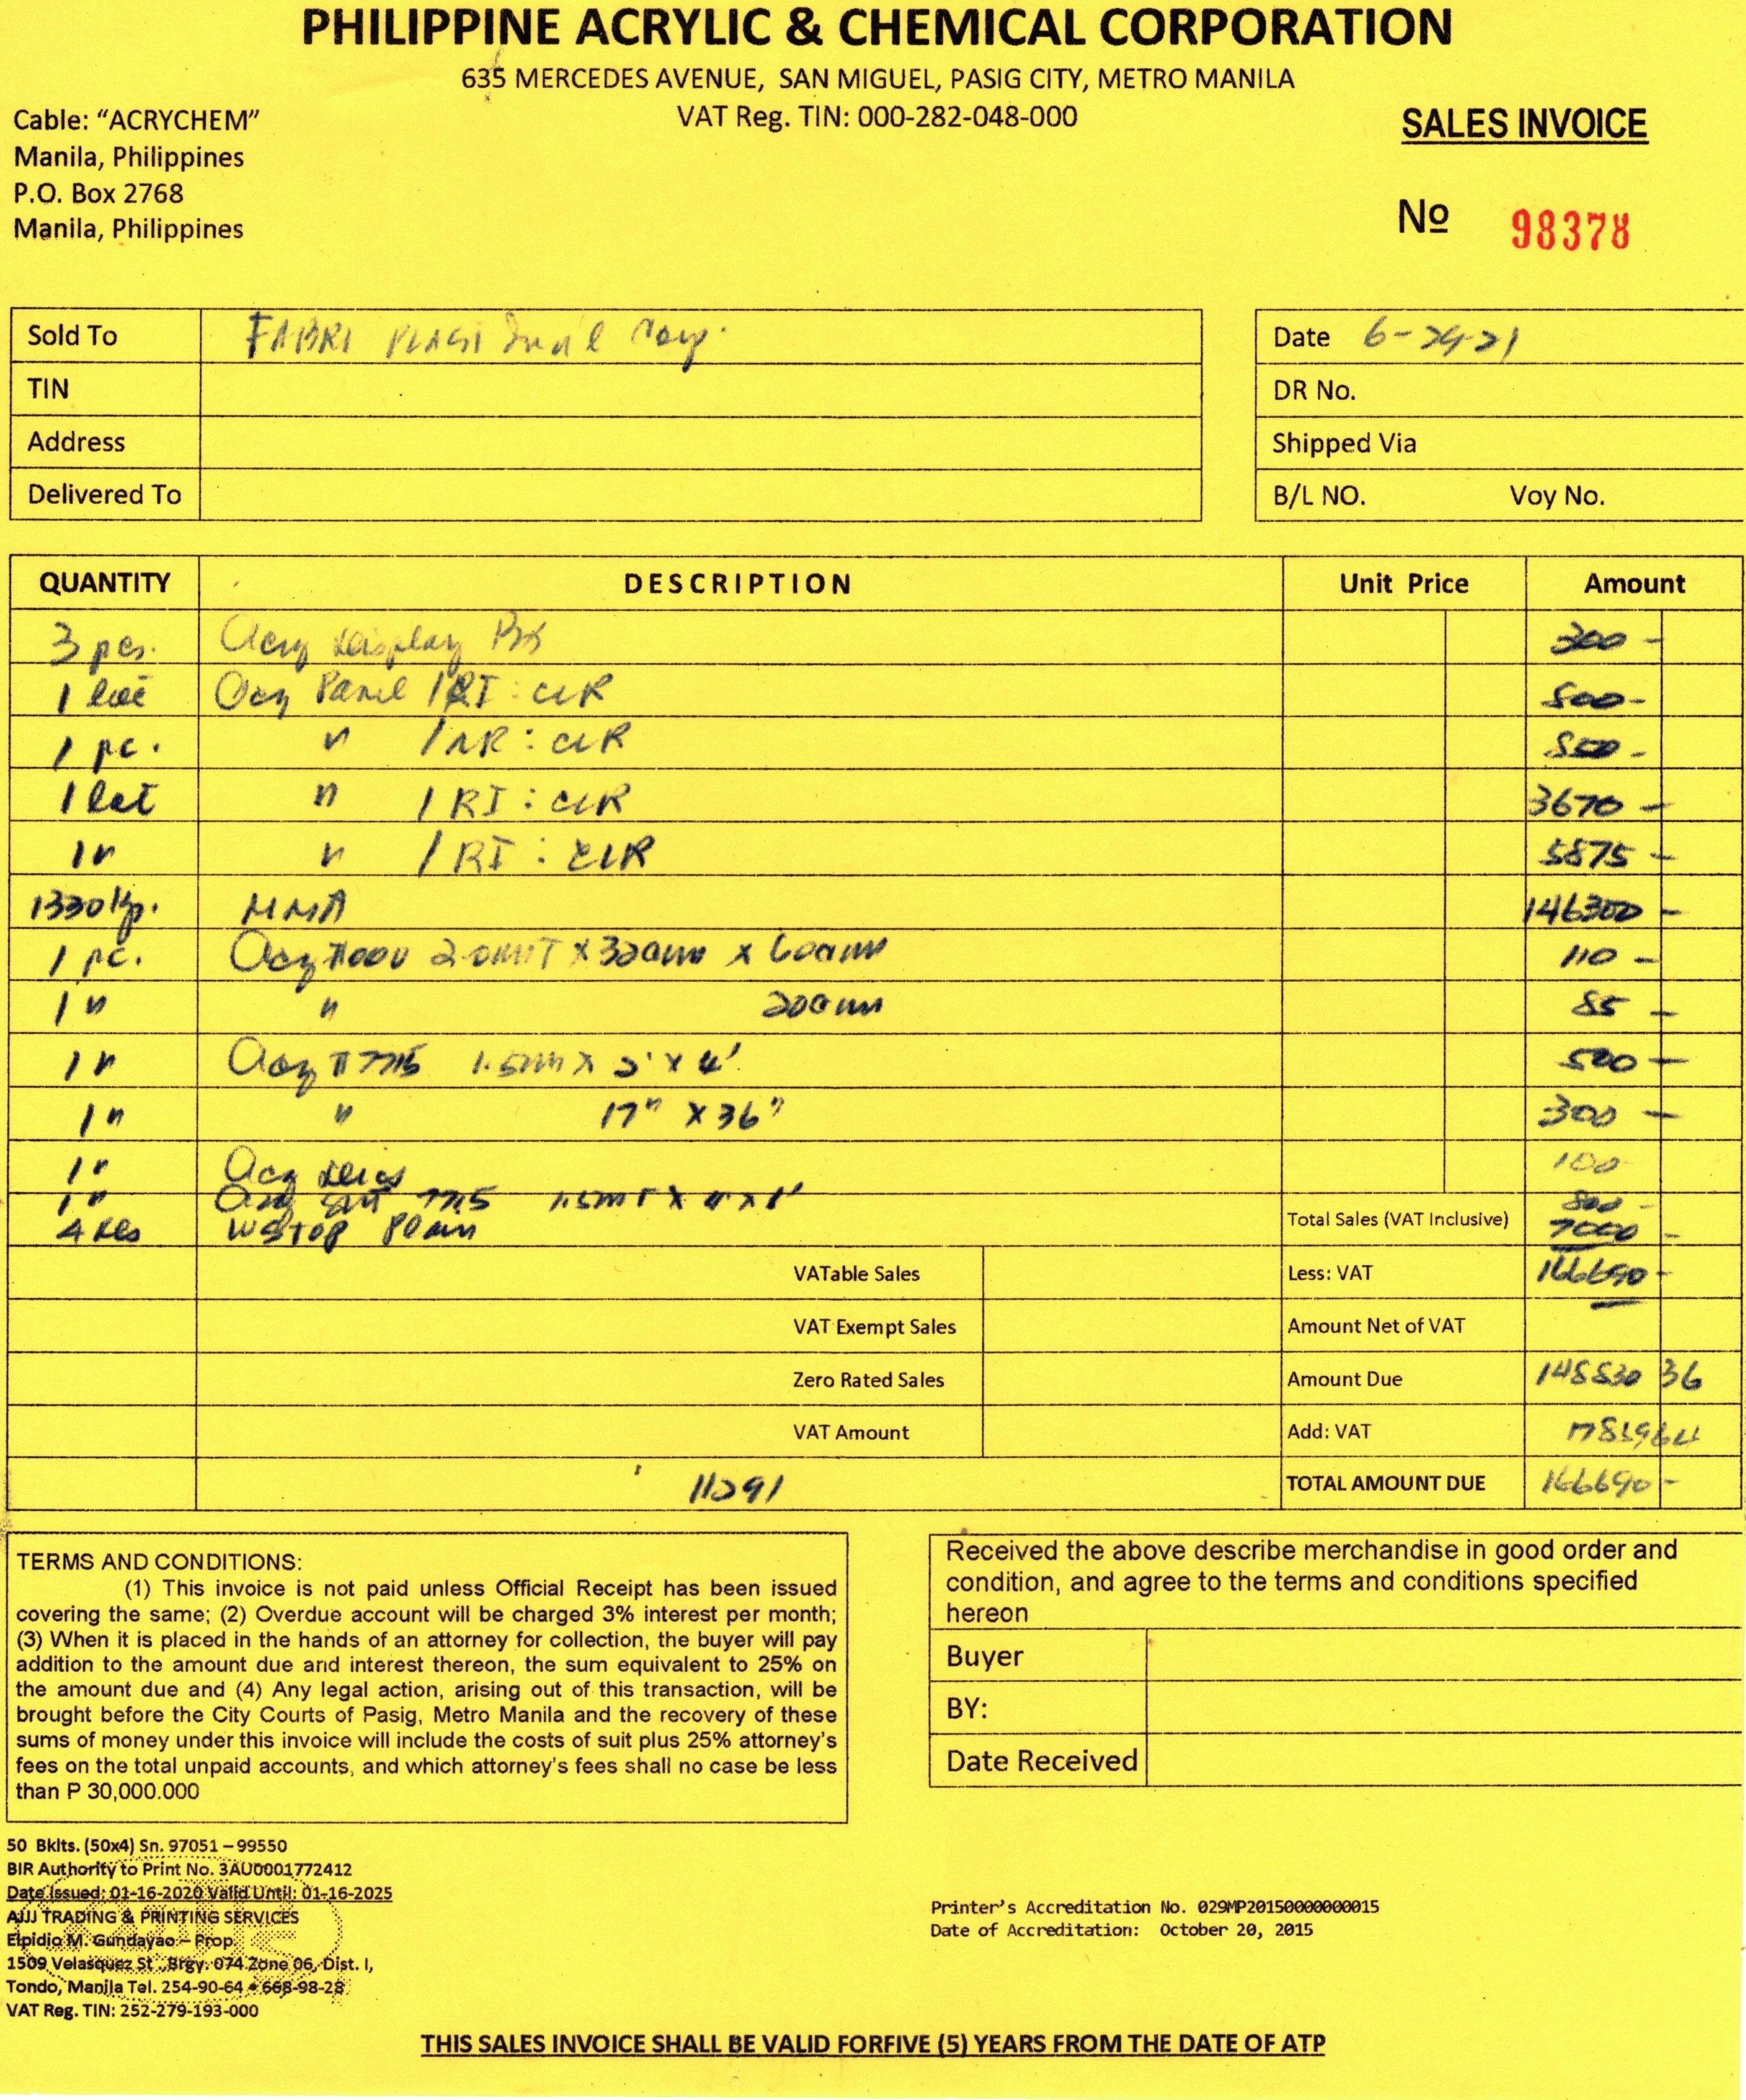 PHILIPPINE ACRYLIC & CHEMICAL CORPORATION
635 MERCEDES AVENUE, SAN MIGUEL, PASIG CITY, METRO MANILA
VAT Reg. TIN: 000-282-048-000
Cable: “ACRYCHEM”
Manila, Philippines
P.O. Box 2768
Manila, Philippines
SALES INVOICE
№ 98378
Sold To FABRI PLAST Corp.
TIN
Address
Delivered To
Date 6-24-21
DR No.
Shipped Via
B/L NO. Voy No.
QUANTITY DESCRIPTION Unit Price Amount
3 pcs. Acry Display 300 -
1 lot Acry Panel / RI : CLR 500 -
1 pc. " / NR : CLR -
1 lot " / RI : CLR 3670 -
1 " " / RI : CLR 5875 -
1330 Kg. MMA 146300 -
1 pc. Acry # 000 2.0MMT X 320mm x 600mm 110 -
1 " " 200mm 85 -
1 " Acry 1.5mm x 2' x 4' 500 -
1 " " 17" X 36" 300 -
1 " Acry 100
1 " 1.5mmT X 4' x 8' 800 -
Total Sales (VAT Inclusive)
4 WSTOP 7000 -
VATable Sales Less: VAT 166690 -
VAT Exempt Sales Amount Net of VAT
Zero Rated Sales Amount Due 148830 36
VAT Amount Add: VAT 17859 64
11291 TOTAL AMOUNT DUE 166690 -
TERMS AND CONDITIONS:
(1) This invoice is not paid unless Official Receipt has been issued
covering the same; (2) Overdue account will be charged 3% interest per month;
(3) When it is placed in the hands of an attorney for collection, the buyer will pay
addition to the amount due and interest thereon, the sum equivalent to 25% on
the amount due and (4) Any legal action, arising out of this transaction, will be
brought before the City Courts of Pasig, Metro Manila and the recovery of these
sums of money under this invoice will include the costs of suit plus 25% attorney's
fees on the total unpaid accounts, and which attorney's fees shall no case be less
than P 30,000.000
Received the above describe merchandise in good order and
condition, and agree to the terms and conditions specified
hereon
Buyer
BY:
Date Received
50 Bklts. (50x4) Sn. 97051 – 99550
BIR Authority to Print No. 3AU0001772412
Date Issued: 01-16-2020 Valid Until: 01-16-2025
AJJJ TRADING & PRINTING SERVICES
Elpidio M. Gundayao – Prop
1509 Velasquez St., Brgy. 074 Zone 06, Dist. I,
Tondo, Manila Tel. 254-90-64 • 668-98-28
VAT Reg. TIN: 252-279-193-000
Printer's Accreditation No. 029MP20150000000015
Date of Accreditation: October 20, 2015
THIS SALES INVOICE SHALL BE VALID FORFIVE (5) YEARS FROM THE DATE OF ATP